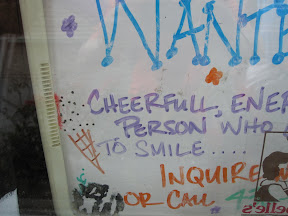 WANTE
CHEERFULL, ENER
PERSON WHO
TO SMILE.....
INQUIRE
OR CALL
elle's